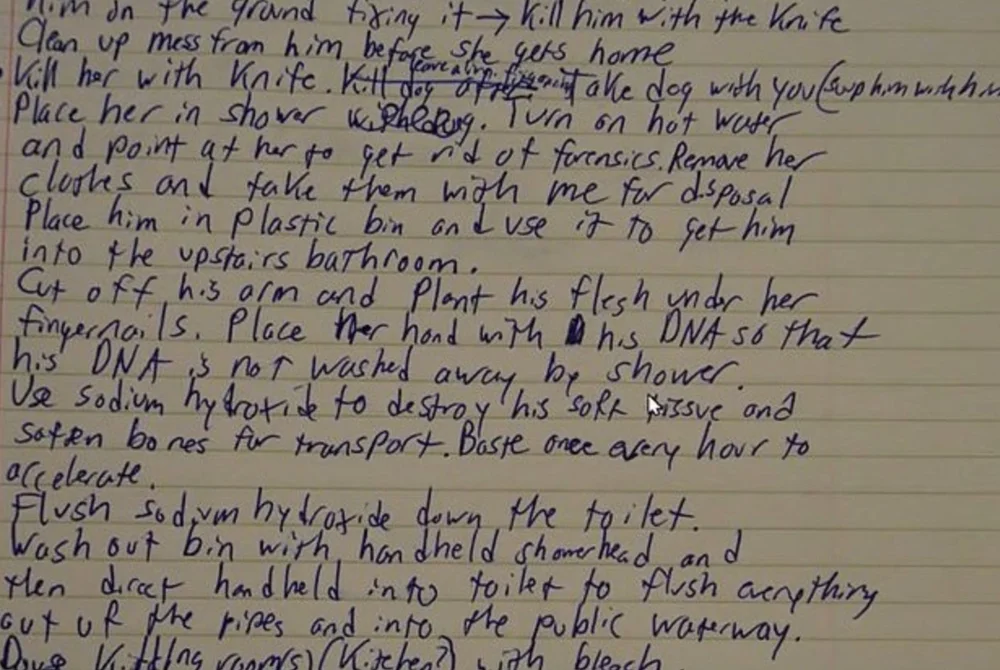 him on the ground fixing it → Kill him with the Knife
Clean up mess from him before she gets home
Kill her with Knife. Kill dog after Take dog with you (
Place her in shower. Turn on hot water
and point at her to get rid of forensics. Remove her
clothes and take them with me for disposal
Place him in plastic bin and use it to get him
into the upstairs bathroom.
Cut off his arm and plant his flesh under her
fingernails. Place her hand with his DNA so that
his DNA is not washed away by shower.
Use sodium hydroxide to destroy his soft tissue and
soften bones for transport. Baste once every hour to
accelerate.
Flush sodium hydroxide down the toilet.
Wash out bin with handheld showerhead and
then direct handheld into toilet to flush everything
out of the pipes and into the public waterway.
Douse Killing room(s) (Kitchen?) with bleach